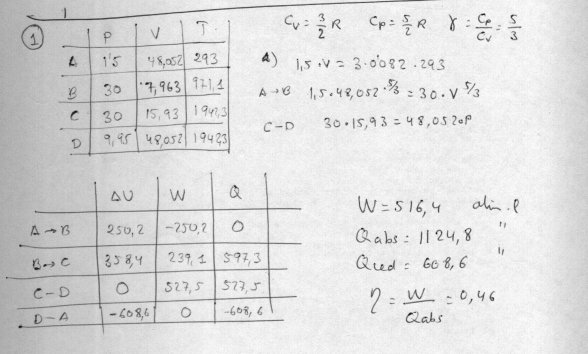 1
Cv = 3/2 R Cp = 5/2 R γ = Cp/Cv = 5/3
P V T
A 1'5 48,052 293
B 30 7,963 971,1
C 30 15,93 1942,3
D 9,95 48,052 1942,3
A) 1,5 · V = 3 · 0'082 · 293
A→B 1,5 · 48,052^5/3 = 30 · V^5/3
C-D 30 · 15,93 = 48,052 · P
ΔU W Q
A→B 250,2 -250,2 0
B→C 358,4 239,1 597,3
C-D 0 527,5 527,5
D-A -608,6 0 -608,6
W = 516,4 atm.l
Qabs = 1124,8 "
Qced = 608,6 "
η = W/Qabs = 0,46